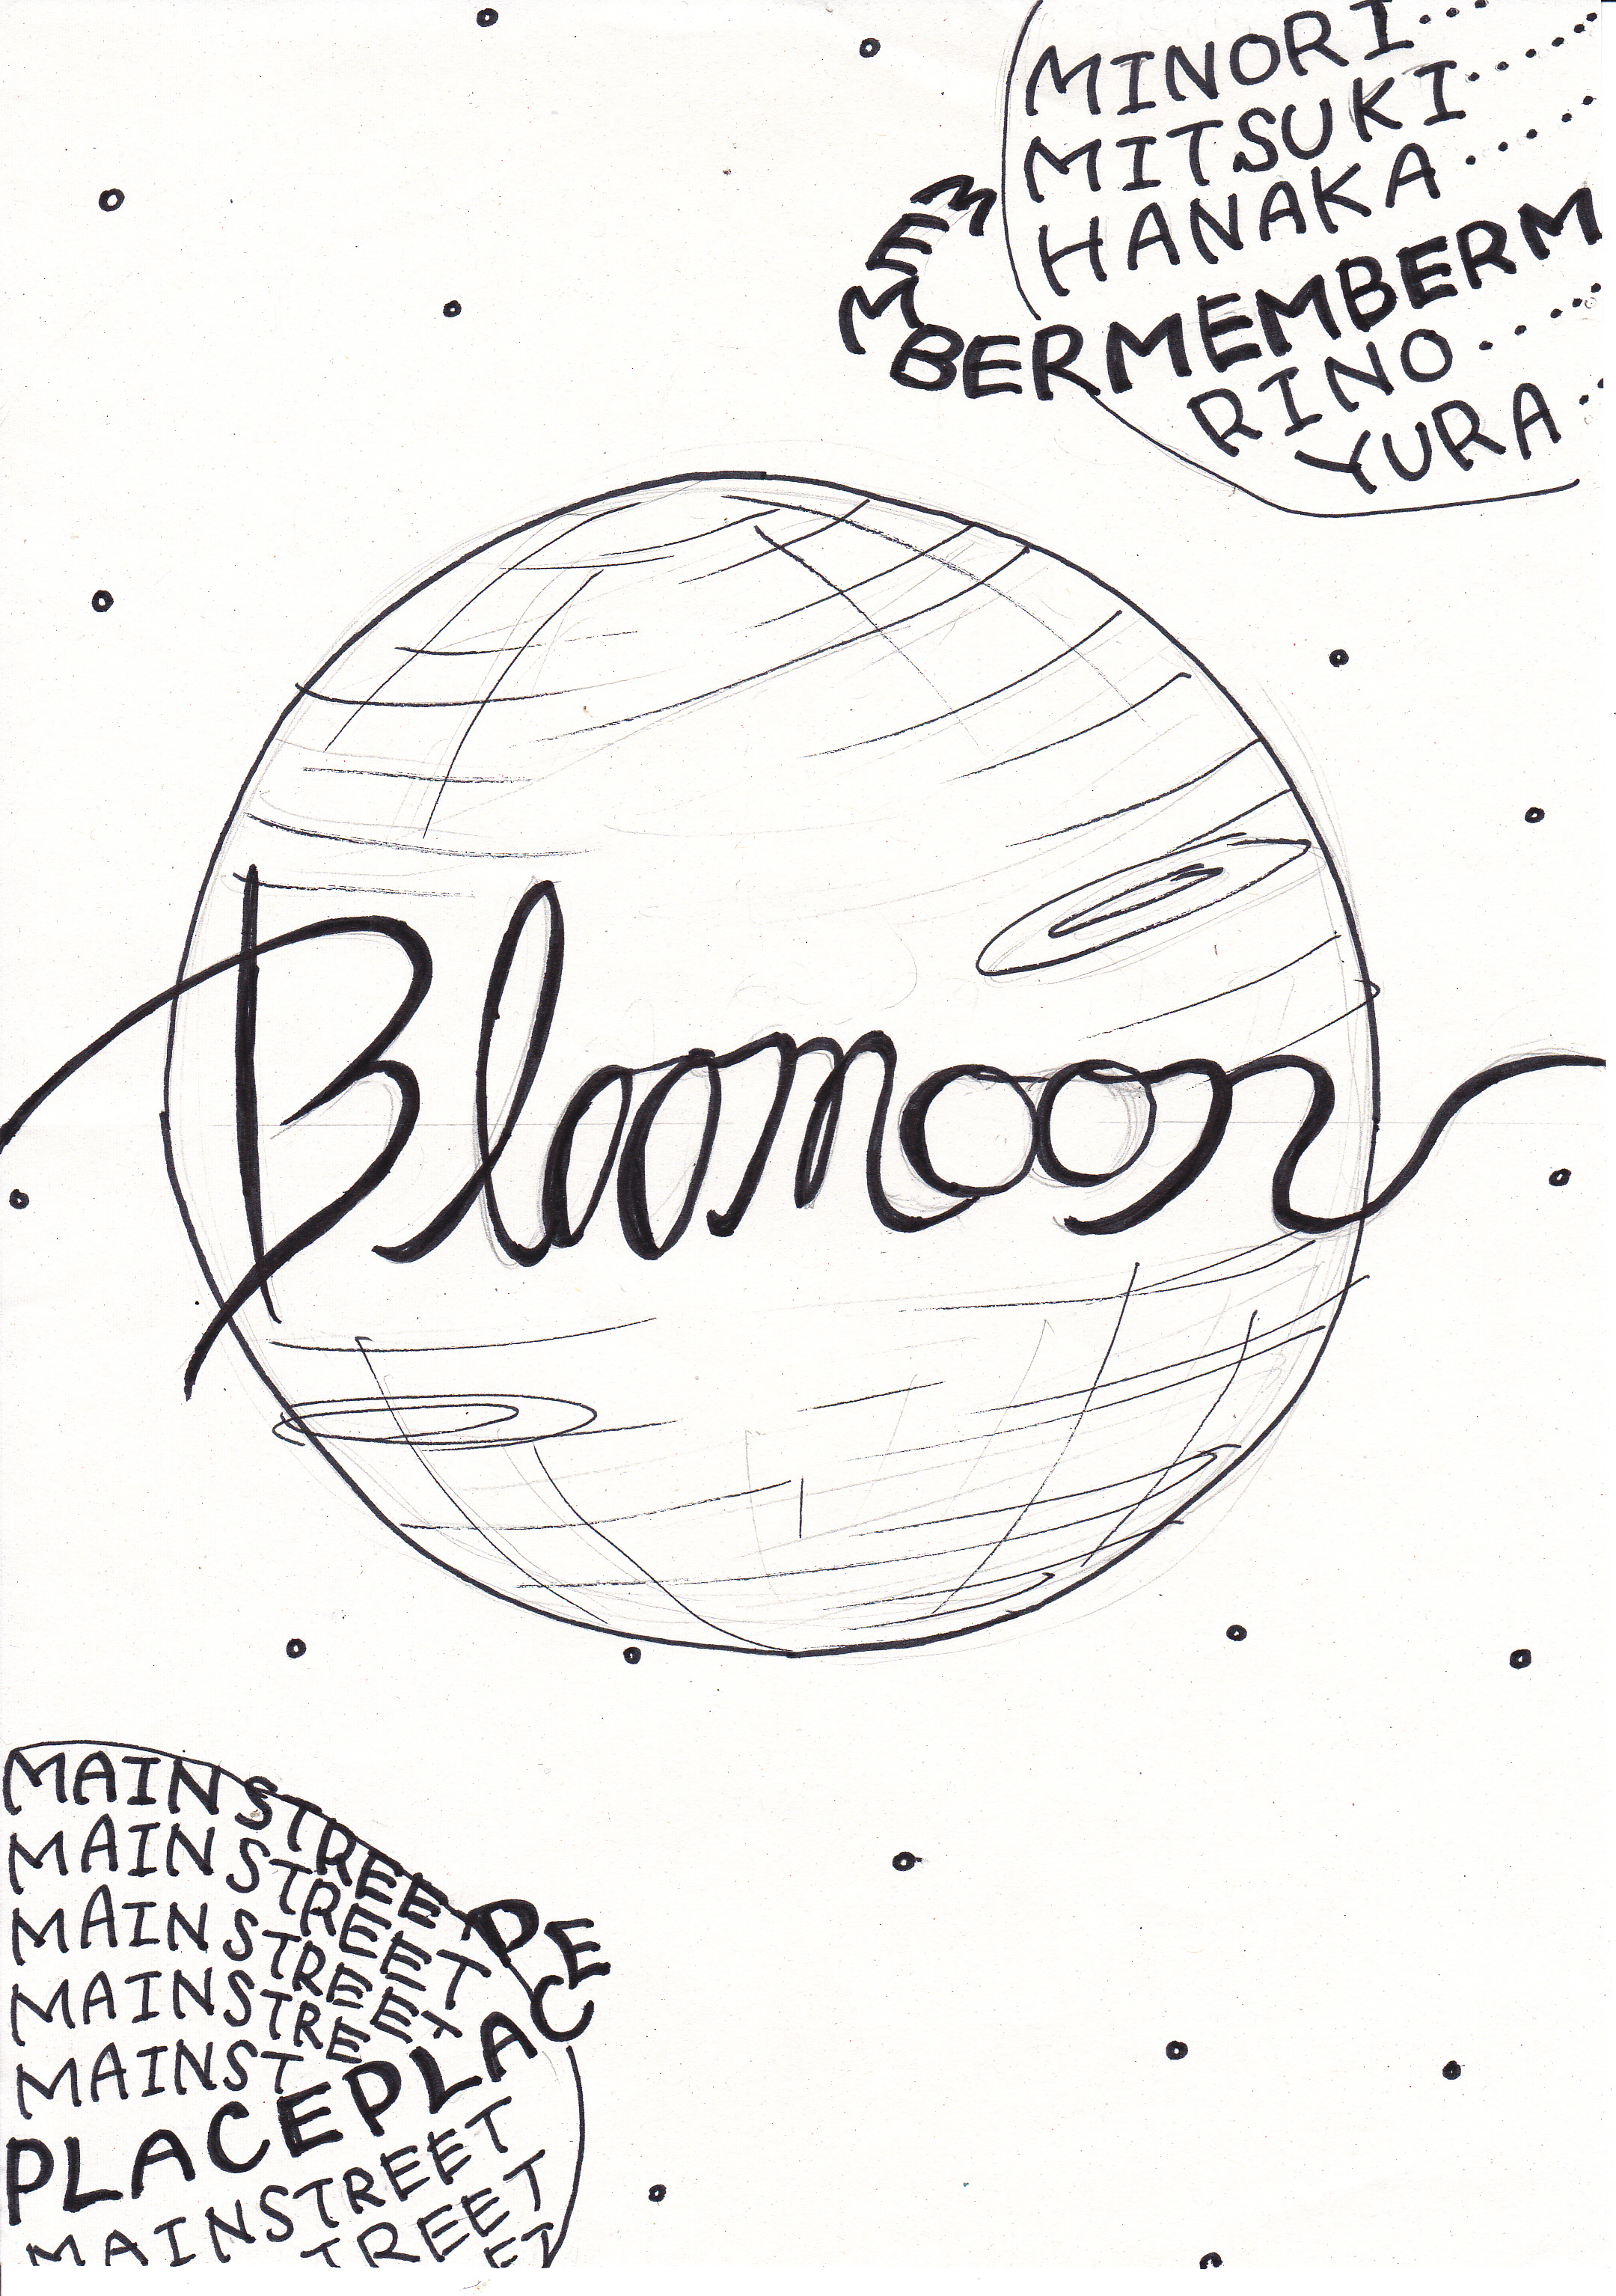 MINORI.....
MITSUKI......
HANAKA.....
MEMBERMEMBERM
RINO......
YURA..
Bloomoon
MAINSTREE
MAINSTREET
MAINSTREET
MAINSTRE
MAINST
PLACEPLACE
P
MAINSTREET
MAINSTREET
TREET
ET